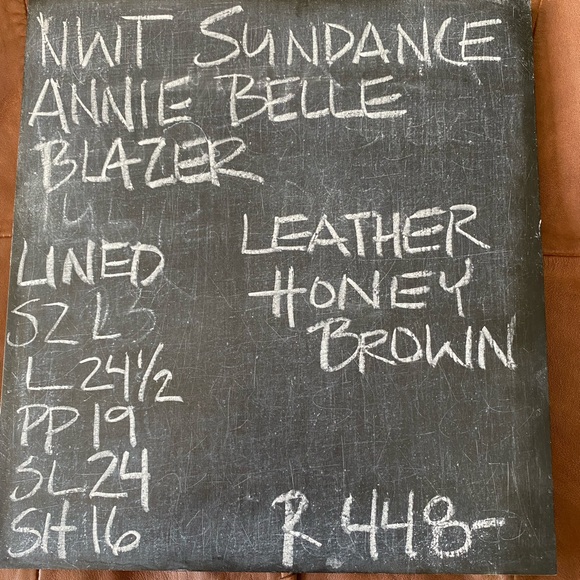 NWT SUNDANCE
ANNIE BELLE
BLAZER
LINED
SZ L
L 24 1/2
PP 19
SL 24
SH 16
LEATHER
HONEY
BROWN
R 448-